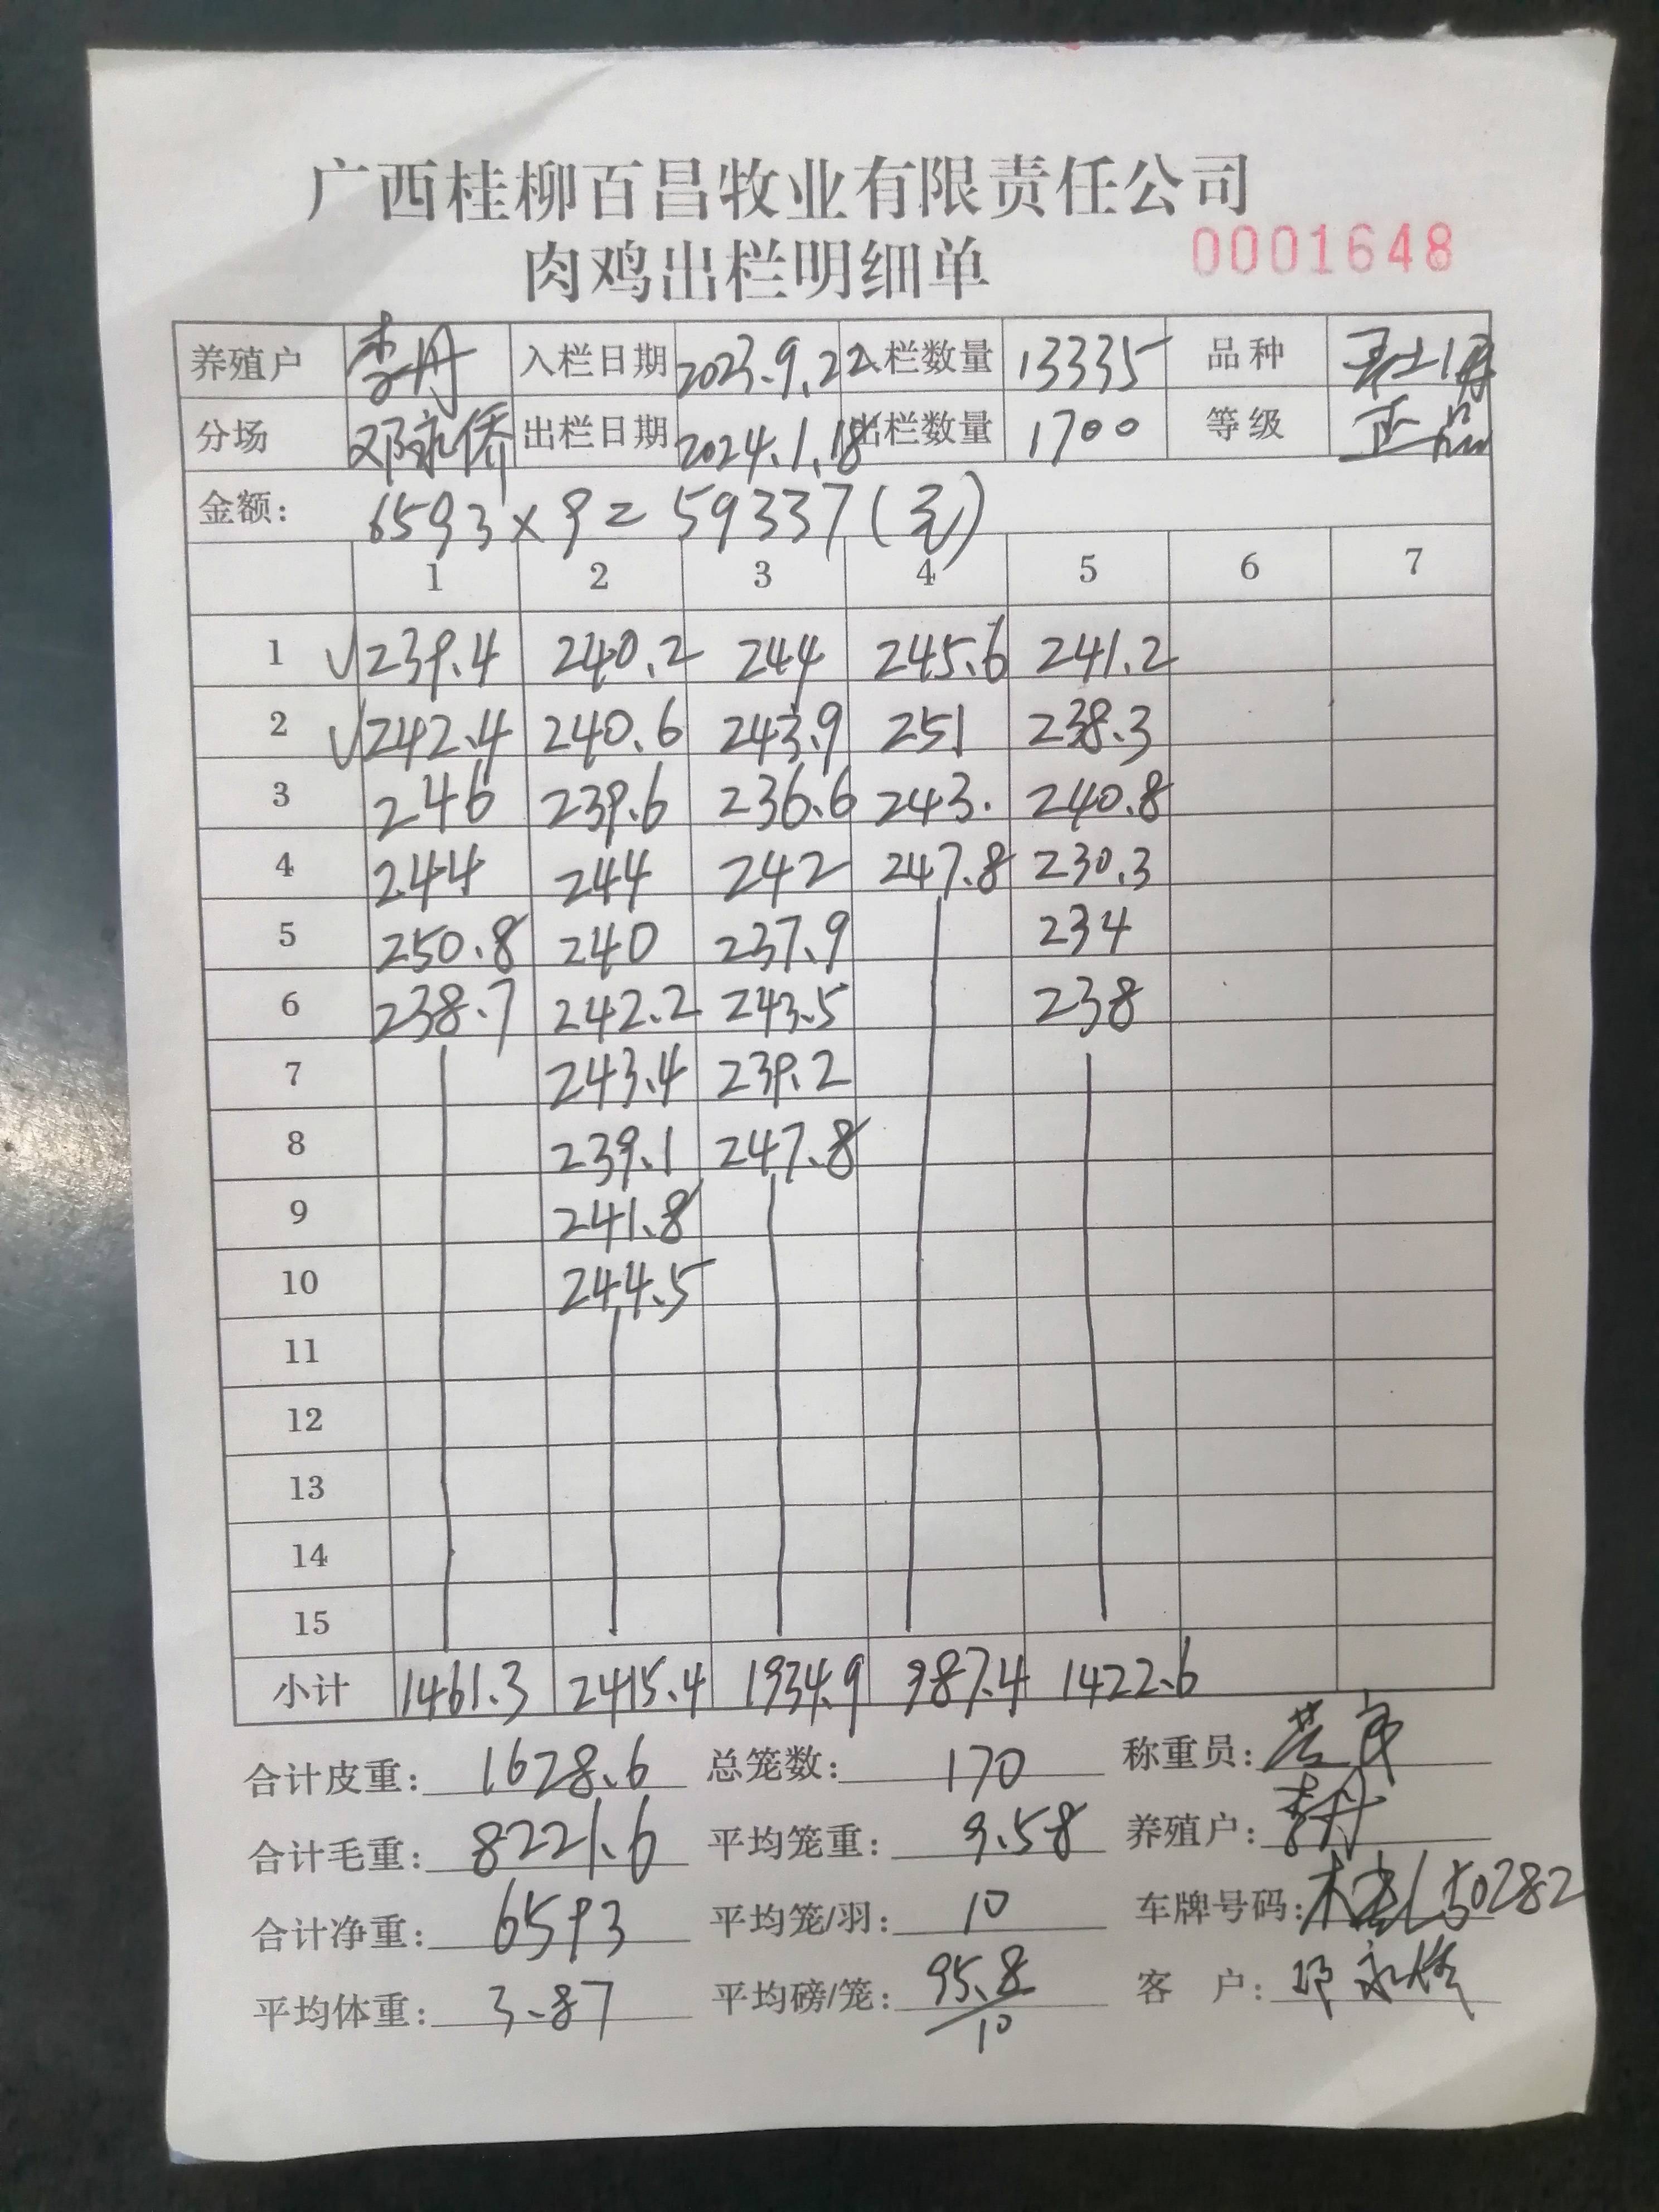 广西桂柳百昌牧业有限责任公司
肉鸡出栏明细单 0001648
养殖户 李丹 入栏日期 2023.9.22 入栏数量 13335 品种
分场 邓永侨 出栏日期 2024.1.18 出栏数量 1700 等级 正品
金额: 6593×9=59337(元)
1 2 3 4 5 6 7
1 √239.4 240.2 244 245.6 241.2
2 √242.4 240.6 243.9 251 238.3
3 246 239.6 236.6 243. 240.8
4 244 244 242 247.8 230.3
5 250.8 240 237.9 234
6 238.7 242.2 243.5 238
7 243.4 239.2
8 239.1 247.8
9 241.8
10 244.5
11
12
13
14
15
小计 1461.3 2415.4 1934.9 987.4 1422.6
合计皮重: 1628.6 总笼数: 170 称重员:
合计毛重: 8221.6 平均笼重: 9.58 养殖户: 李丹
合计净重: 6593 平均笼/羽: 10 车牌号码: 桂L50282
平均体重: 3.87 平均磅/笼: 95.8/10 客户: 邓永侨